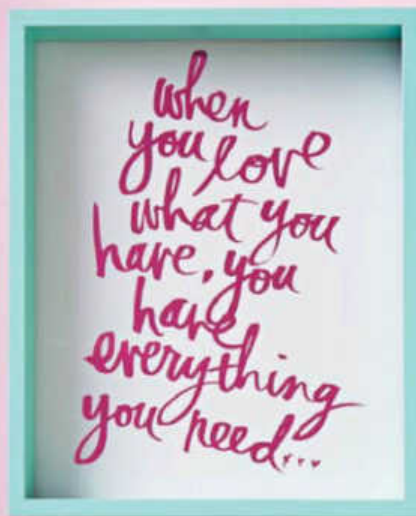 when
you love
what you
have, you
have
everything
you need...